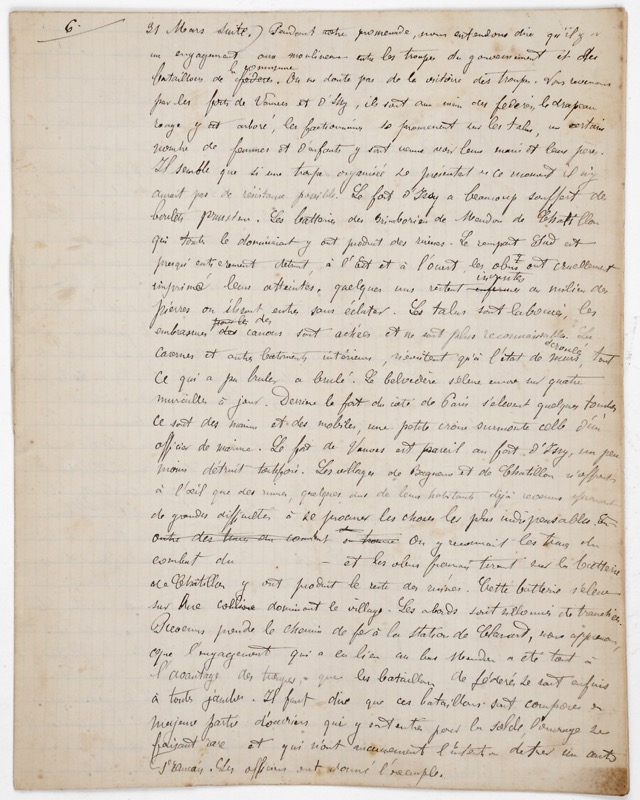 6.
31 Mars suite.) Pendant notre promenade, nous entendons dire qu'il y a
un engagement aux moulineaux entre les troupes du gouvernement et des
bataillons de la commune fédérés. On ne doute pas de la victoire des troupes. Nous revenons
par les forts de Vanves et d'Issy, ils sont aux mains des fédérés, le drapeau
rouge y est arboré, les factionnaires se promenent sur les talus, un certain
nombre de femmes et d'enfants y sont venus voir leurs maris et leurs peres.
Il semble que si une troupe organisée se présentait en ce moment il n'y
aurait pas de résistance possible. Le fort d'Issy a beaucoup souffert des
boulets prussiens. Les batteries des de Meudon de Chatillon
qui toutes le dominaient y ont produit des ruines. Le rempart Sud est
presqu'entierement détruit, à l'Est et à l'ouest les obus ont cruellement
imprimé leurs atteintes, quelques uns restent au milieu des
pierres où ils sont entrés sans éclater. Les talus sont labourés, les
embrasures des canons sont et ne sont plus reconnaissables. Les
casernes et autres batiments intérieurs, n'existent qu'à l'état de murs écroulés, tout
ce qui a pu bruler a brulé. Le belvedère s'éleve encore sur quatre
murailles à jour. Derriere le fort du coté de Paris s'elevent quelques tombes
ce sont des marins et des mobiles, une petite croix surmonte celle d'un
officier de marine. Le fort de Vanves est pareil au fort d'Issy, un peu
moins détruit toutefois. Les villages de Bagneux et de Chatillon n'offrent
à l'œil que des ruines, quelques uns de leurs habitants déjà revenus éprouvent
de grandes difficultés à se procurer les choses les plus indispensables.
outre des traces du combat On y reconnait les traces du
combat du - et les obus français tirant sur la batterie
de Chatillon y ont produit le reste des ruines. Cette batterie s'éleve
sur une colline dominant le village. Les abords sont sillonnés de tranchées.
Revenus prendre le chemin de fer à la station de Clamart, nous apprenons
que l'engagement qui a eu lieu au bas Meudon a été tout à
l'avantage des troupes, que les bataillons de fédérés se sont enfuis
à toutes jambes. Il faut dire que ces bataillons sont composés en
majeure partie d'ouvriers qui y sont entrés pour la solde, l'ouvrage se
faisant rare et qui n'ont aucunement l'intention de tirer un coup
Les officiers ont donné l'exemple.